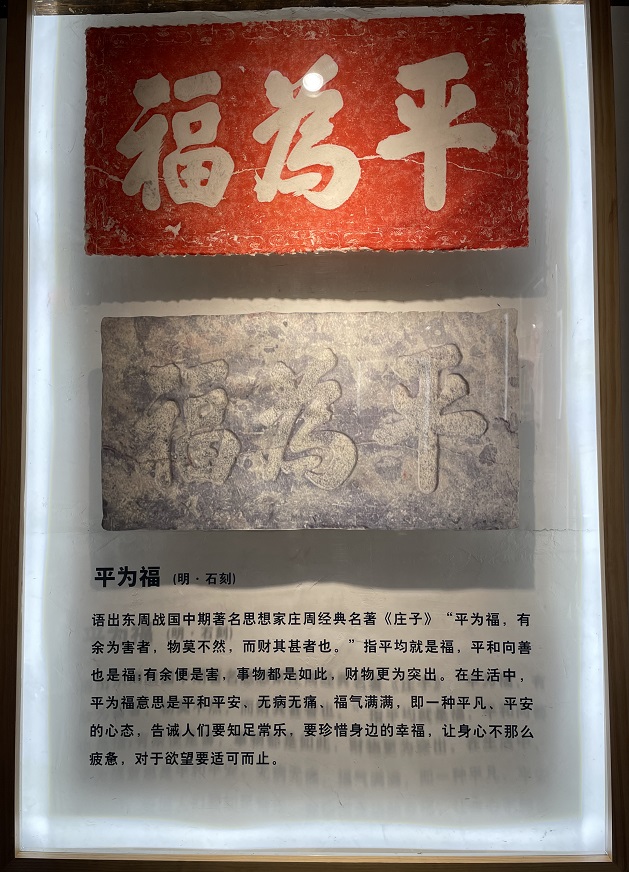 平為福
平為福
平为福 （明·石刻）
语出东周战国中期著名思想家庄周经典名著《庄子》“平为福，有
余为害者，物莫不然，而财其甚者也。”指平均就是福，平和向善
也是福；有余便是害，事物都是如此，财物更为突出。在生活中，
平为福意思是平和平安、无病无痛、福气满满，即一种平凡、平安
的心态，告诫人们要知足常乐，要珍惜身边的幸福，让身心不那么
疲惫，对于欲望要适可而止。